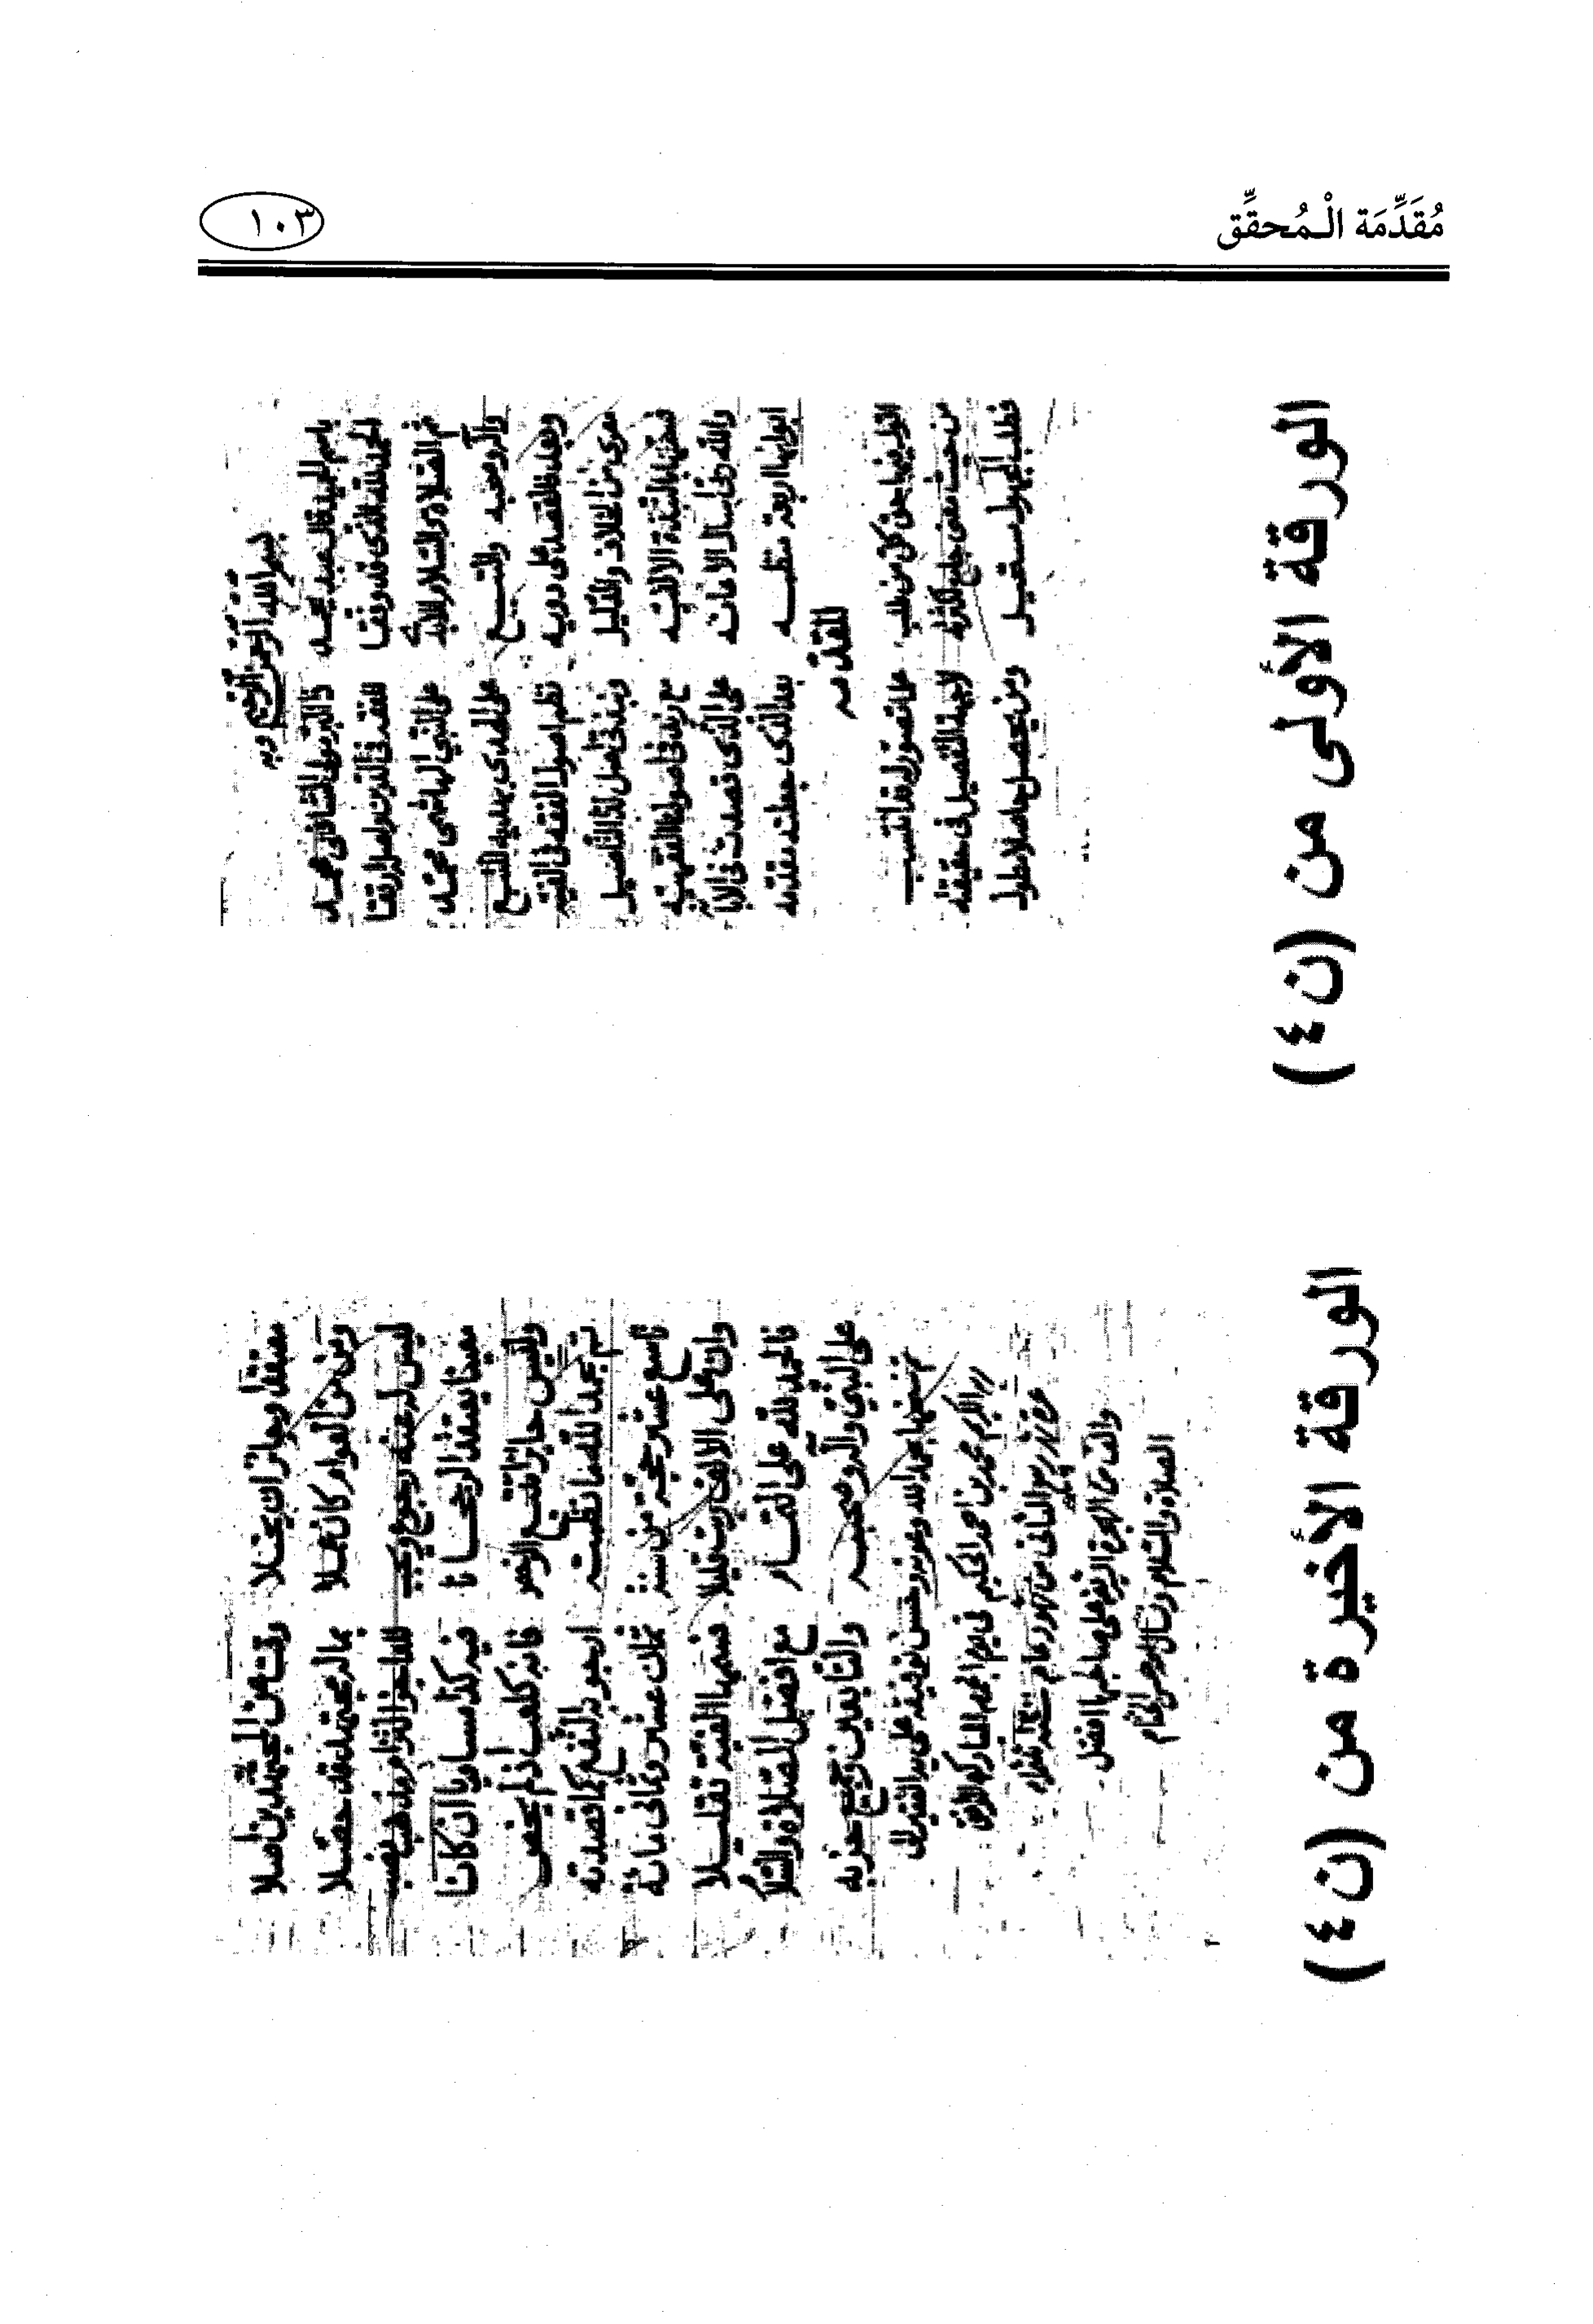 مُقَدِّمَة الْـمُحقِّق
١٠٣
بسم الله الرحمن الرحيم وبه
باسم المجيد قال عبد يحمد
ذا البرموي الشافعي محمد
الحمد لله الذي قد وفقا
للفقه في الدين
ثم الصلاة والسلام الابدي
على النبي الهاشمي محمد
وآله وصحبه والتبع
على الهدى بهديه المتبع
وبعد فالقصد على رويه
نظم اصول الفقه في الفيه
معرى من الخلاف والدليل
فسمها بالنبذة الالفيه
والله ربي اسال الاعانه
على الذي قصدت في الابانه
ابوابها اربعة منظمه
بعد الذي جعلته مقدمه
المقدمه
اقول فيها حق كل من طلب
على تصور له قد انتسب
من حيث معنى جامع لكثره
لاجهة التفصيل في حقيقه
فطلب المجهول مستحيل
ومن يحصل حاصلا يطول
الورقة الأولى من (ن٤)
معتقلا وجائز ان يخلا
وقت من المجتهدين اصلا
ومن من العوام كان عملا
بما له مجتهد قد حصلا
ليس له عنه رجوع ويجب
للعاجز التزام مذهب نصب
معينا يعتقد الرجحانا
فيه كذا مساويا ان كانا
وليس جايزا تتبع الرخص
فانه كلعب اذ لم يخص
تم بحمد الله ما نظمته
ارجو به النفع كما قصدته
تاسع عشر حجة من سنة
ثمان عشر وثماني مائة
وان على الالف ربت قليلا
فسمها الفية تقليلا
فالحمد لله على التمام
مع افضل الصلاة والسلام
على النبي وآله وصحبه
والتابعين وجميع حزبه
تم نسخها بحمد الله وعونه وحسن توفيقه على يد الفقير الى
ربه الكريم محمد بن احمد الحكيم في يوم الجمعة المباركة
والف من الهجرة النبوية على صاحبها افضل
الصلاة والسلام
الورقة الأخيرة من (ن٤)